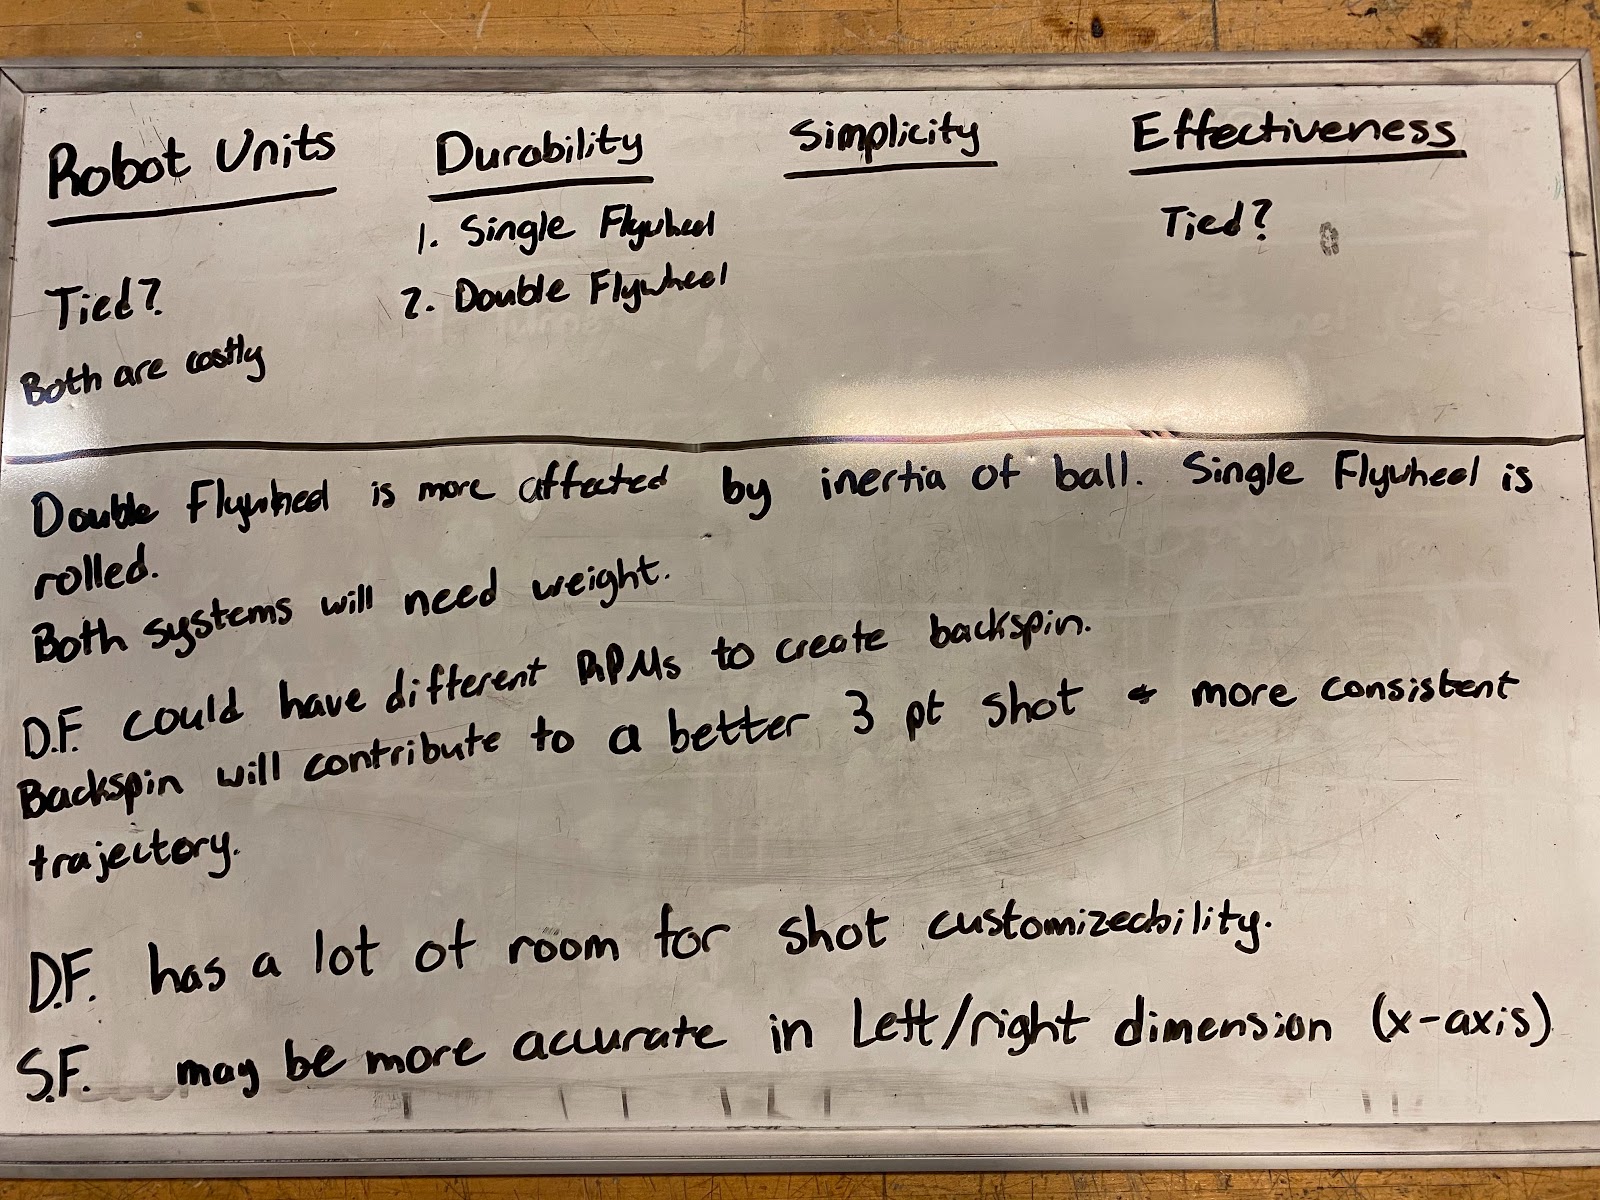 Robot Units Durability Simplicity Effectiveness
1. Single Flywheel Tied?
Tied? 2. Double Flywheel
Both are costly
Double Flywheel is more affected by inertia of ball. Single Flywheel is
rolled.
Both systems will need weight.
D.F. could have different RPMs to create backspin.
Backspin will contribute to a better 3 pt shot & more consistent
trajectory.
D.F. has a lot of room for shot customizeability.
S.F. may be more accurate in Left/right dimension (x-axis)